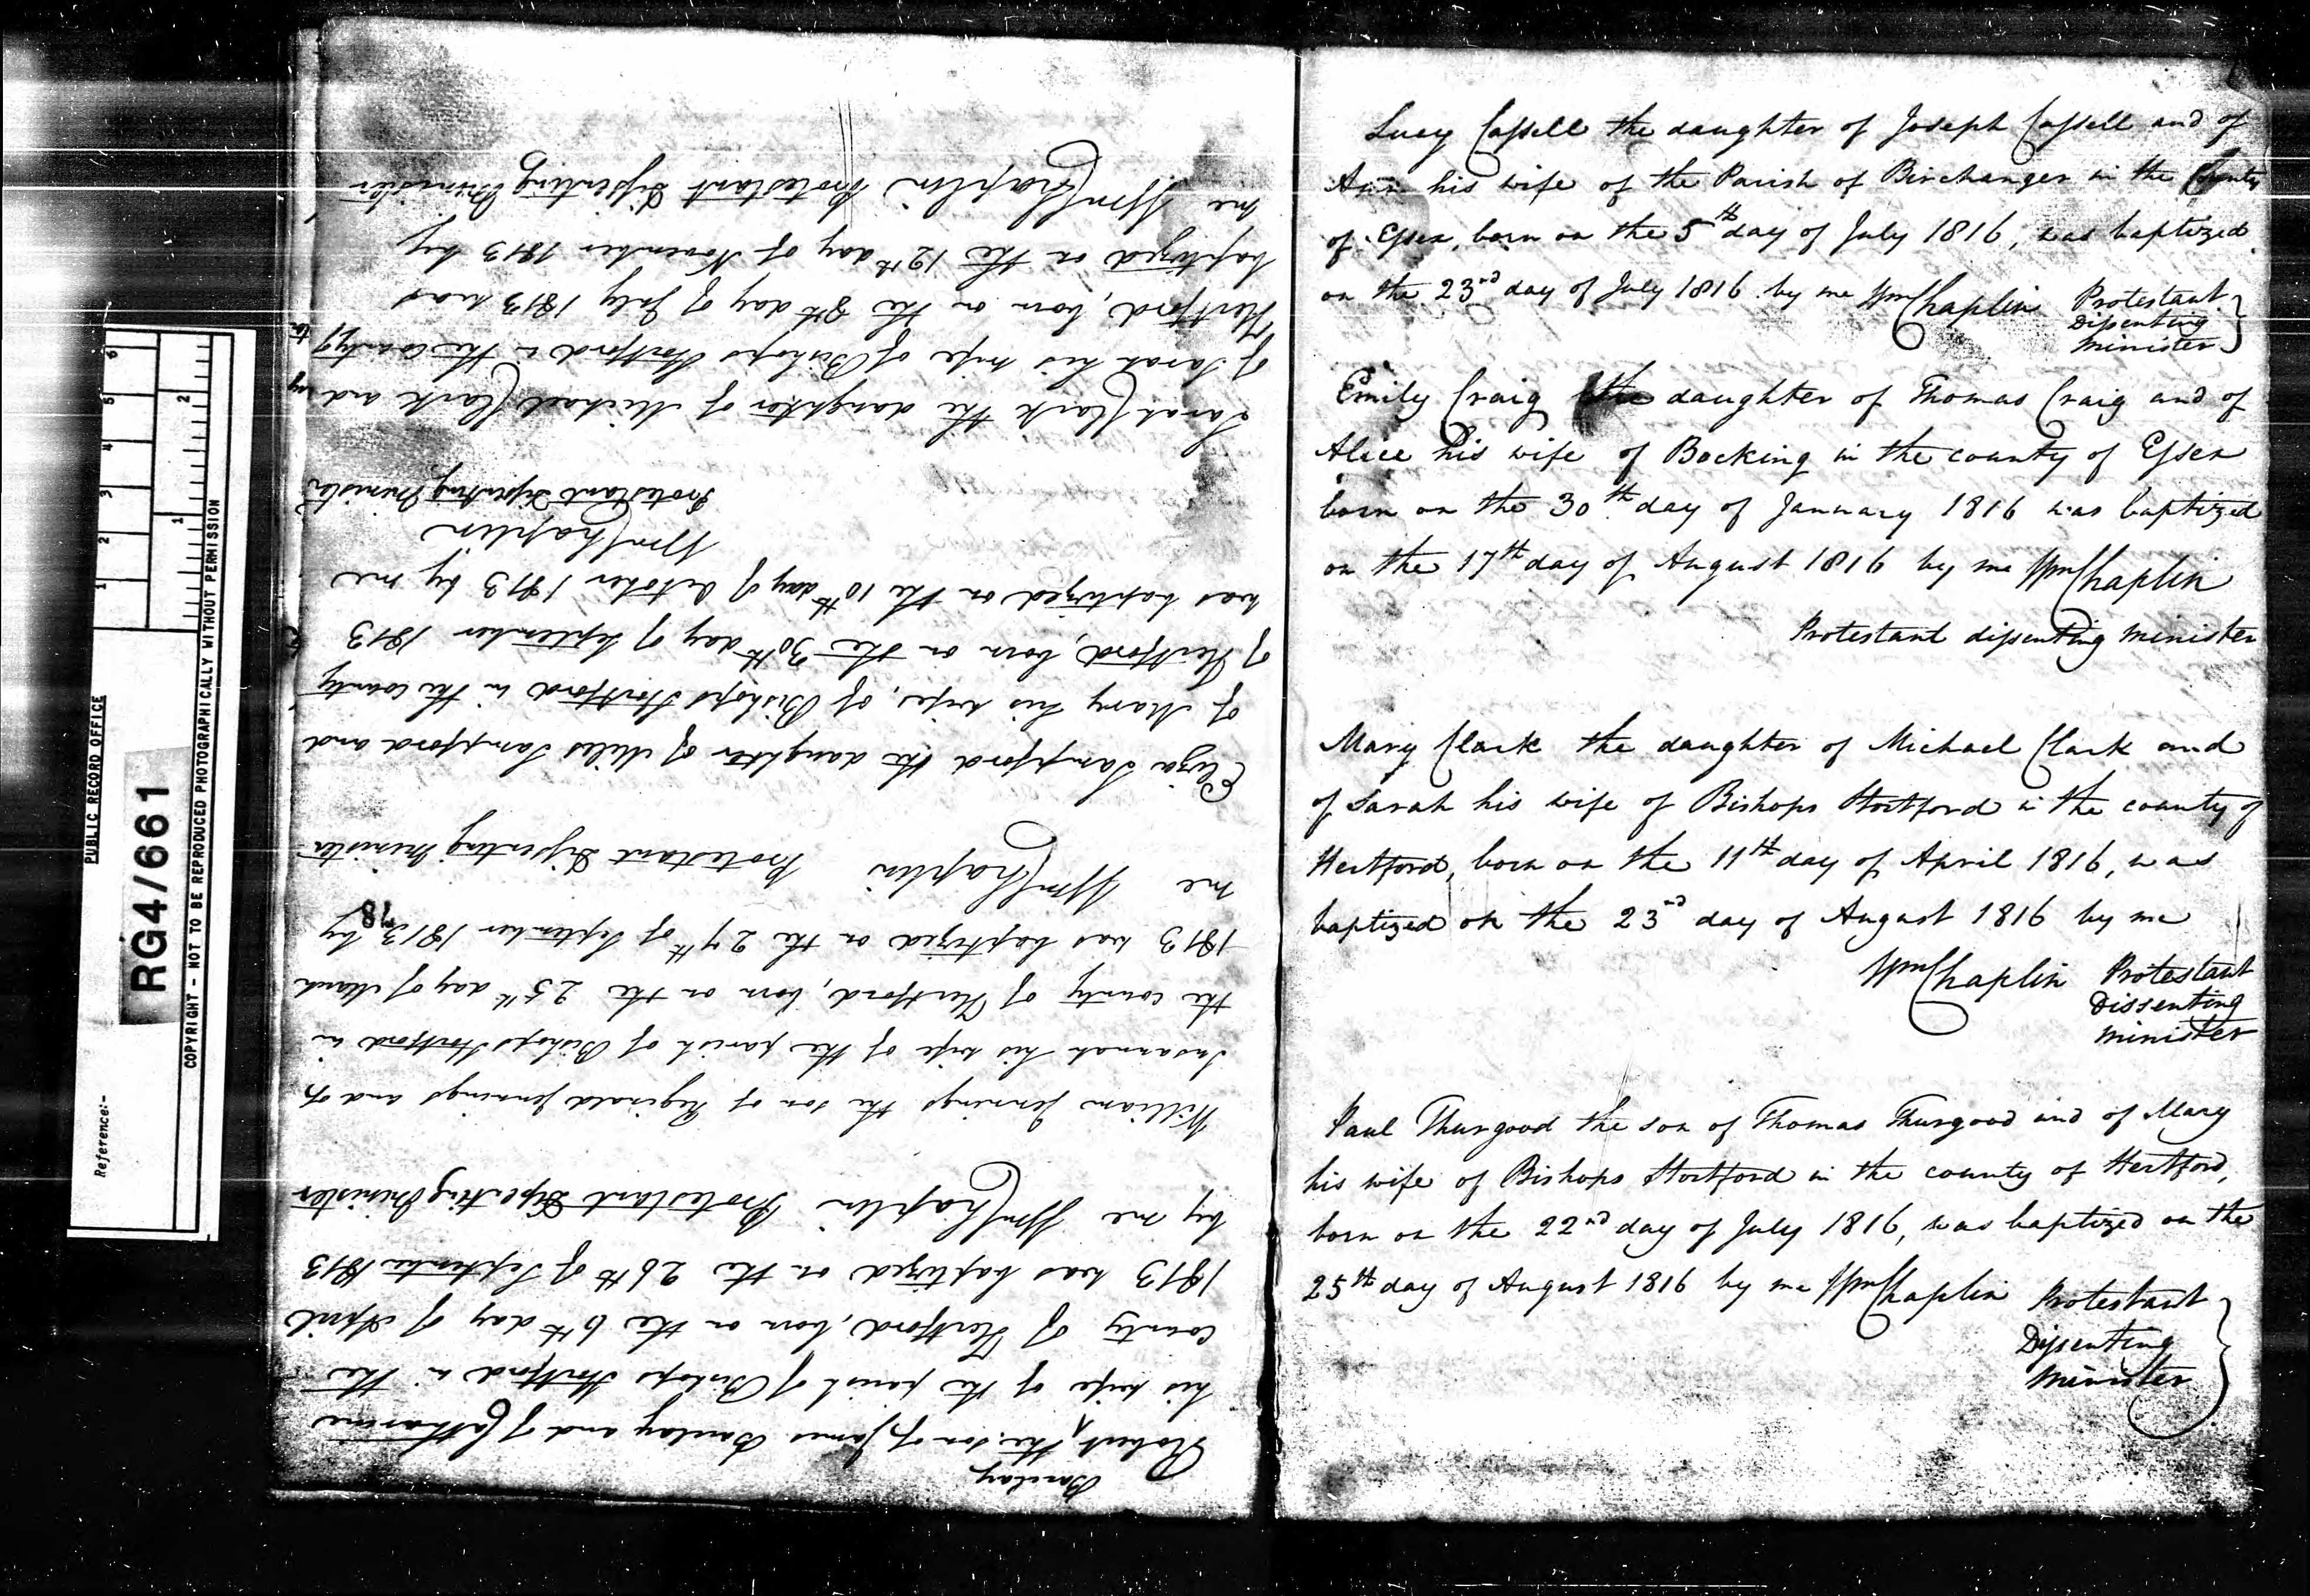 Lucy Cassell the daughter of Joseph Cassell and of
Ann his wife of the Parish of Birchanger in the County
of Essex, born on the 5th day of July 1816, was baptized
on the 23rd day of July 1816 by me Wm Chaplin Protestant
Dissenting
Minister
Emily Craig the daughter of Thomas Craig and of
Alice his wife of Bocking in the county of Essex
born on the 30th day of January 1816 was baptized
on the 17th day of August 1816 by me Wm Chaplin
Protestant dissenting minister
Mary Clark the daughter of Michael Clark and
of Sarah his wife of Bishops Stortford in the county of
Hertford, born on the 11th day of April 1816, was
baptized on the 23rd day of August 1816 by me
Wm Chaplin Protestant
Dissenting
minister
Paul Thurgood the son of Thomas Thurgood and of Mary
his wife of Bishops Stortford in the county of Hertford,
born on the 22nd day of July 1816, was baptized on the
25th day of August 1816 by me Wm Chaplin Protestant
Dissenting
Minister
Barclay
Robert, the son of James Barclay and of Catharine
his wife of the parish of Bishops Stortford in the
county of Hertford, born on the 6th day of April
1813 was baptized on the 26th of September 1813
by me Wm Chaplin Protestant Dissenting Minister
William Jennings the son of Reginald Jennings and of
Susannah his wife of the parish of Bishops Stortford in
the county of Hertford, born on the 25th day of March
1813 was baptized on the 27th of September 1813 by
me Wm Chaplin Protestant Dissenting Minister
Eliza Sampford the daughter of Miles Sampford and
of Mary his wife, of Bishops Stortford in the county
of Hertford, born on the 30th day of September 1813
was baptized on the 10th day of October 1813 by me
Wm Chaplin
Protestant Dissenting Minister
Sarah Clark the daughter of Michael Clark and
of Sarah his wife of Bishops Stortford in the county of
Hertford, born on the 8th day of July 1813 was
baptized on the 12th day of November 1813 by
me Wm Chaplin Protestant Dissenting Minister
78
PUBLIC RECORD OFFICE
Reference:-
RG4/661
COPYRIGHT - NOT TO BE REPRODUCED PHOTOGRAPHICALLY WITHOUT PERMISSION
1 2 3 4 5 6
1 2